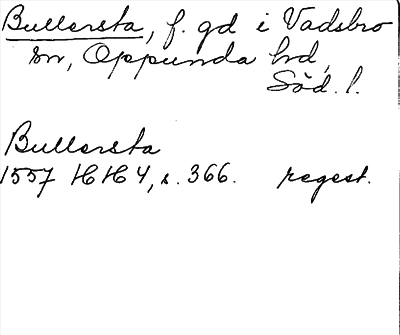 Bullersta, f. gd i Vadsbro
sn, Oppunda hd,
Söd. l.
Bullersta
1557 HH 4, s. 366. regest.